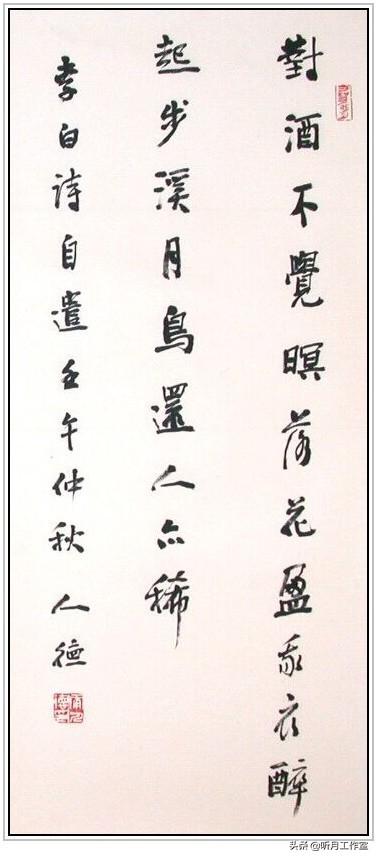 對酒不覺暝落花盈我衣醉
起步溪月鳥還人亦稀
李白詩自遣壬午仲秋人德
头条 @听月工作室